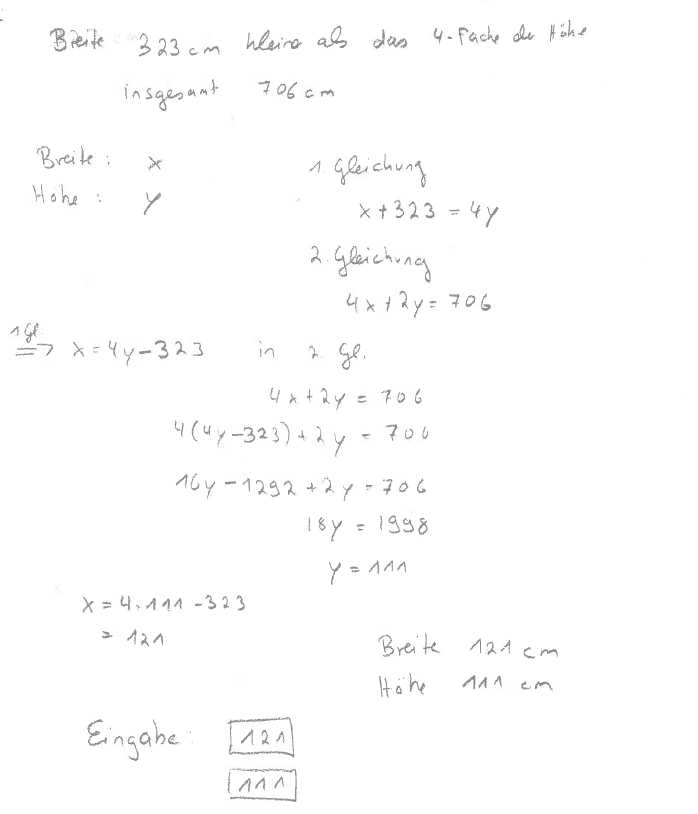 Breite 323 cm kleiner als das 4-Fache der Höhe
insgesamt 706 cm
Breite : x
Höhe : y
1. Gleichung
x + 323 = 4y
2. Gleichung
4x + 2y = 706
1 Gl.
⇒ x = 4y - 323 in 2. Gl.
4x + 2y = 706
4(4y - 323) + 2y = 706
16y - 1292 + 2y = 706
18y = 1998
y = 111
x = 4 · 111 - 323
= 121
Breite 121 cm
Höhe 111 cm
Eingabe : 121
111